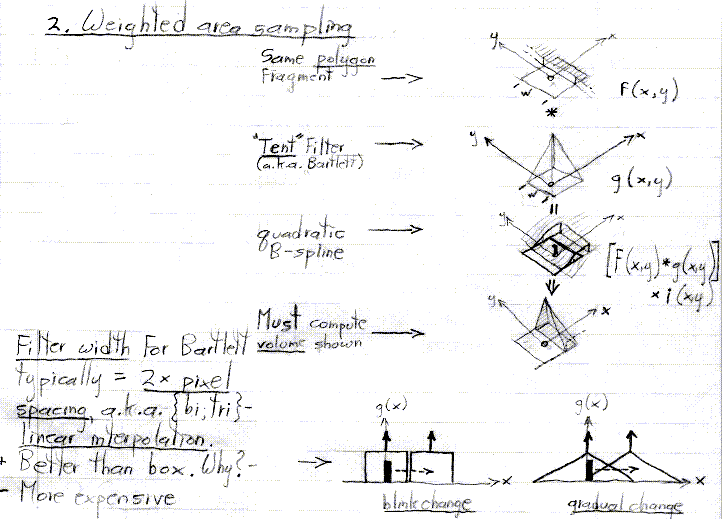 2. Weighted area sampling
Same polygon
Fragment
y
x
w
F(x,y)
*
"Tent" Filter
(a.k.a. Bartlett)
y
x
w
g(x,y)
=
quadratic
B-spline
y
x
[F(x,y)*g(x,y)]
× i(x,y)
Must compute
volume shown
y
x
Filter width For Bartlett
typically = 2× pixel
spacing, a.k.a. {bi,tri}-
linear interpolation.
+ Better than box. Why?-
- More expensive
g(x)
x
blink change
g(x)
x
gradual change